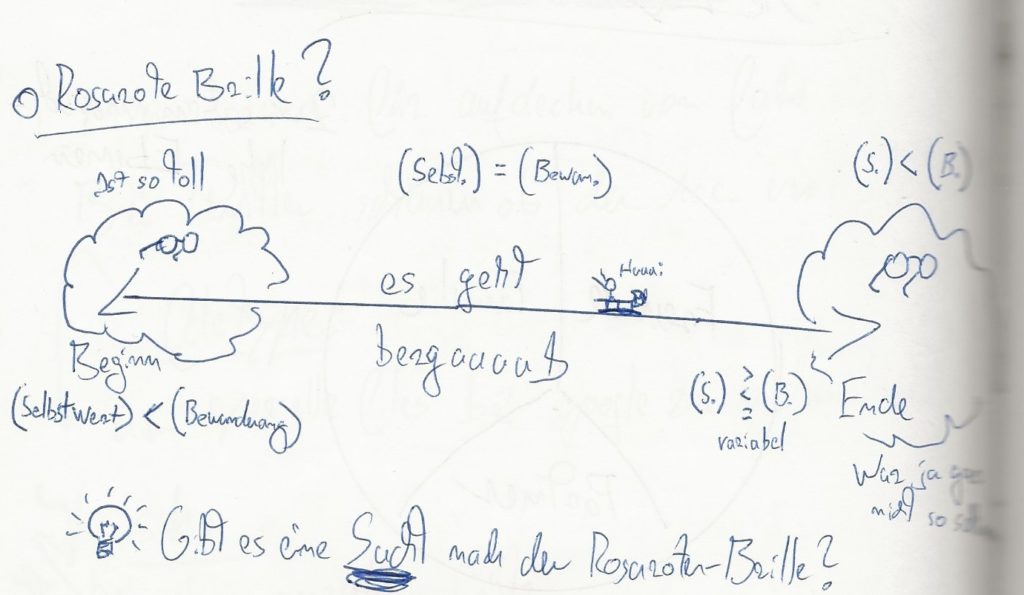 Rosarote Brille?
Ist so toll
(Sebst.) = (Bewun.)
(S.) < (B.)
es geht
Huuui
bergauuuuB
Beginn
(Selbstwert) < (Bewunderung)
(S.) ≷= (B.)
variabel
Ende
War ja gar
nicht so
Gibt es eine Sucht nach der Rosaroten-Brille?